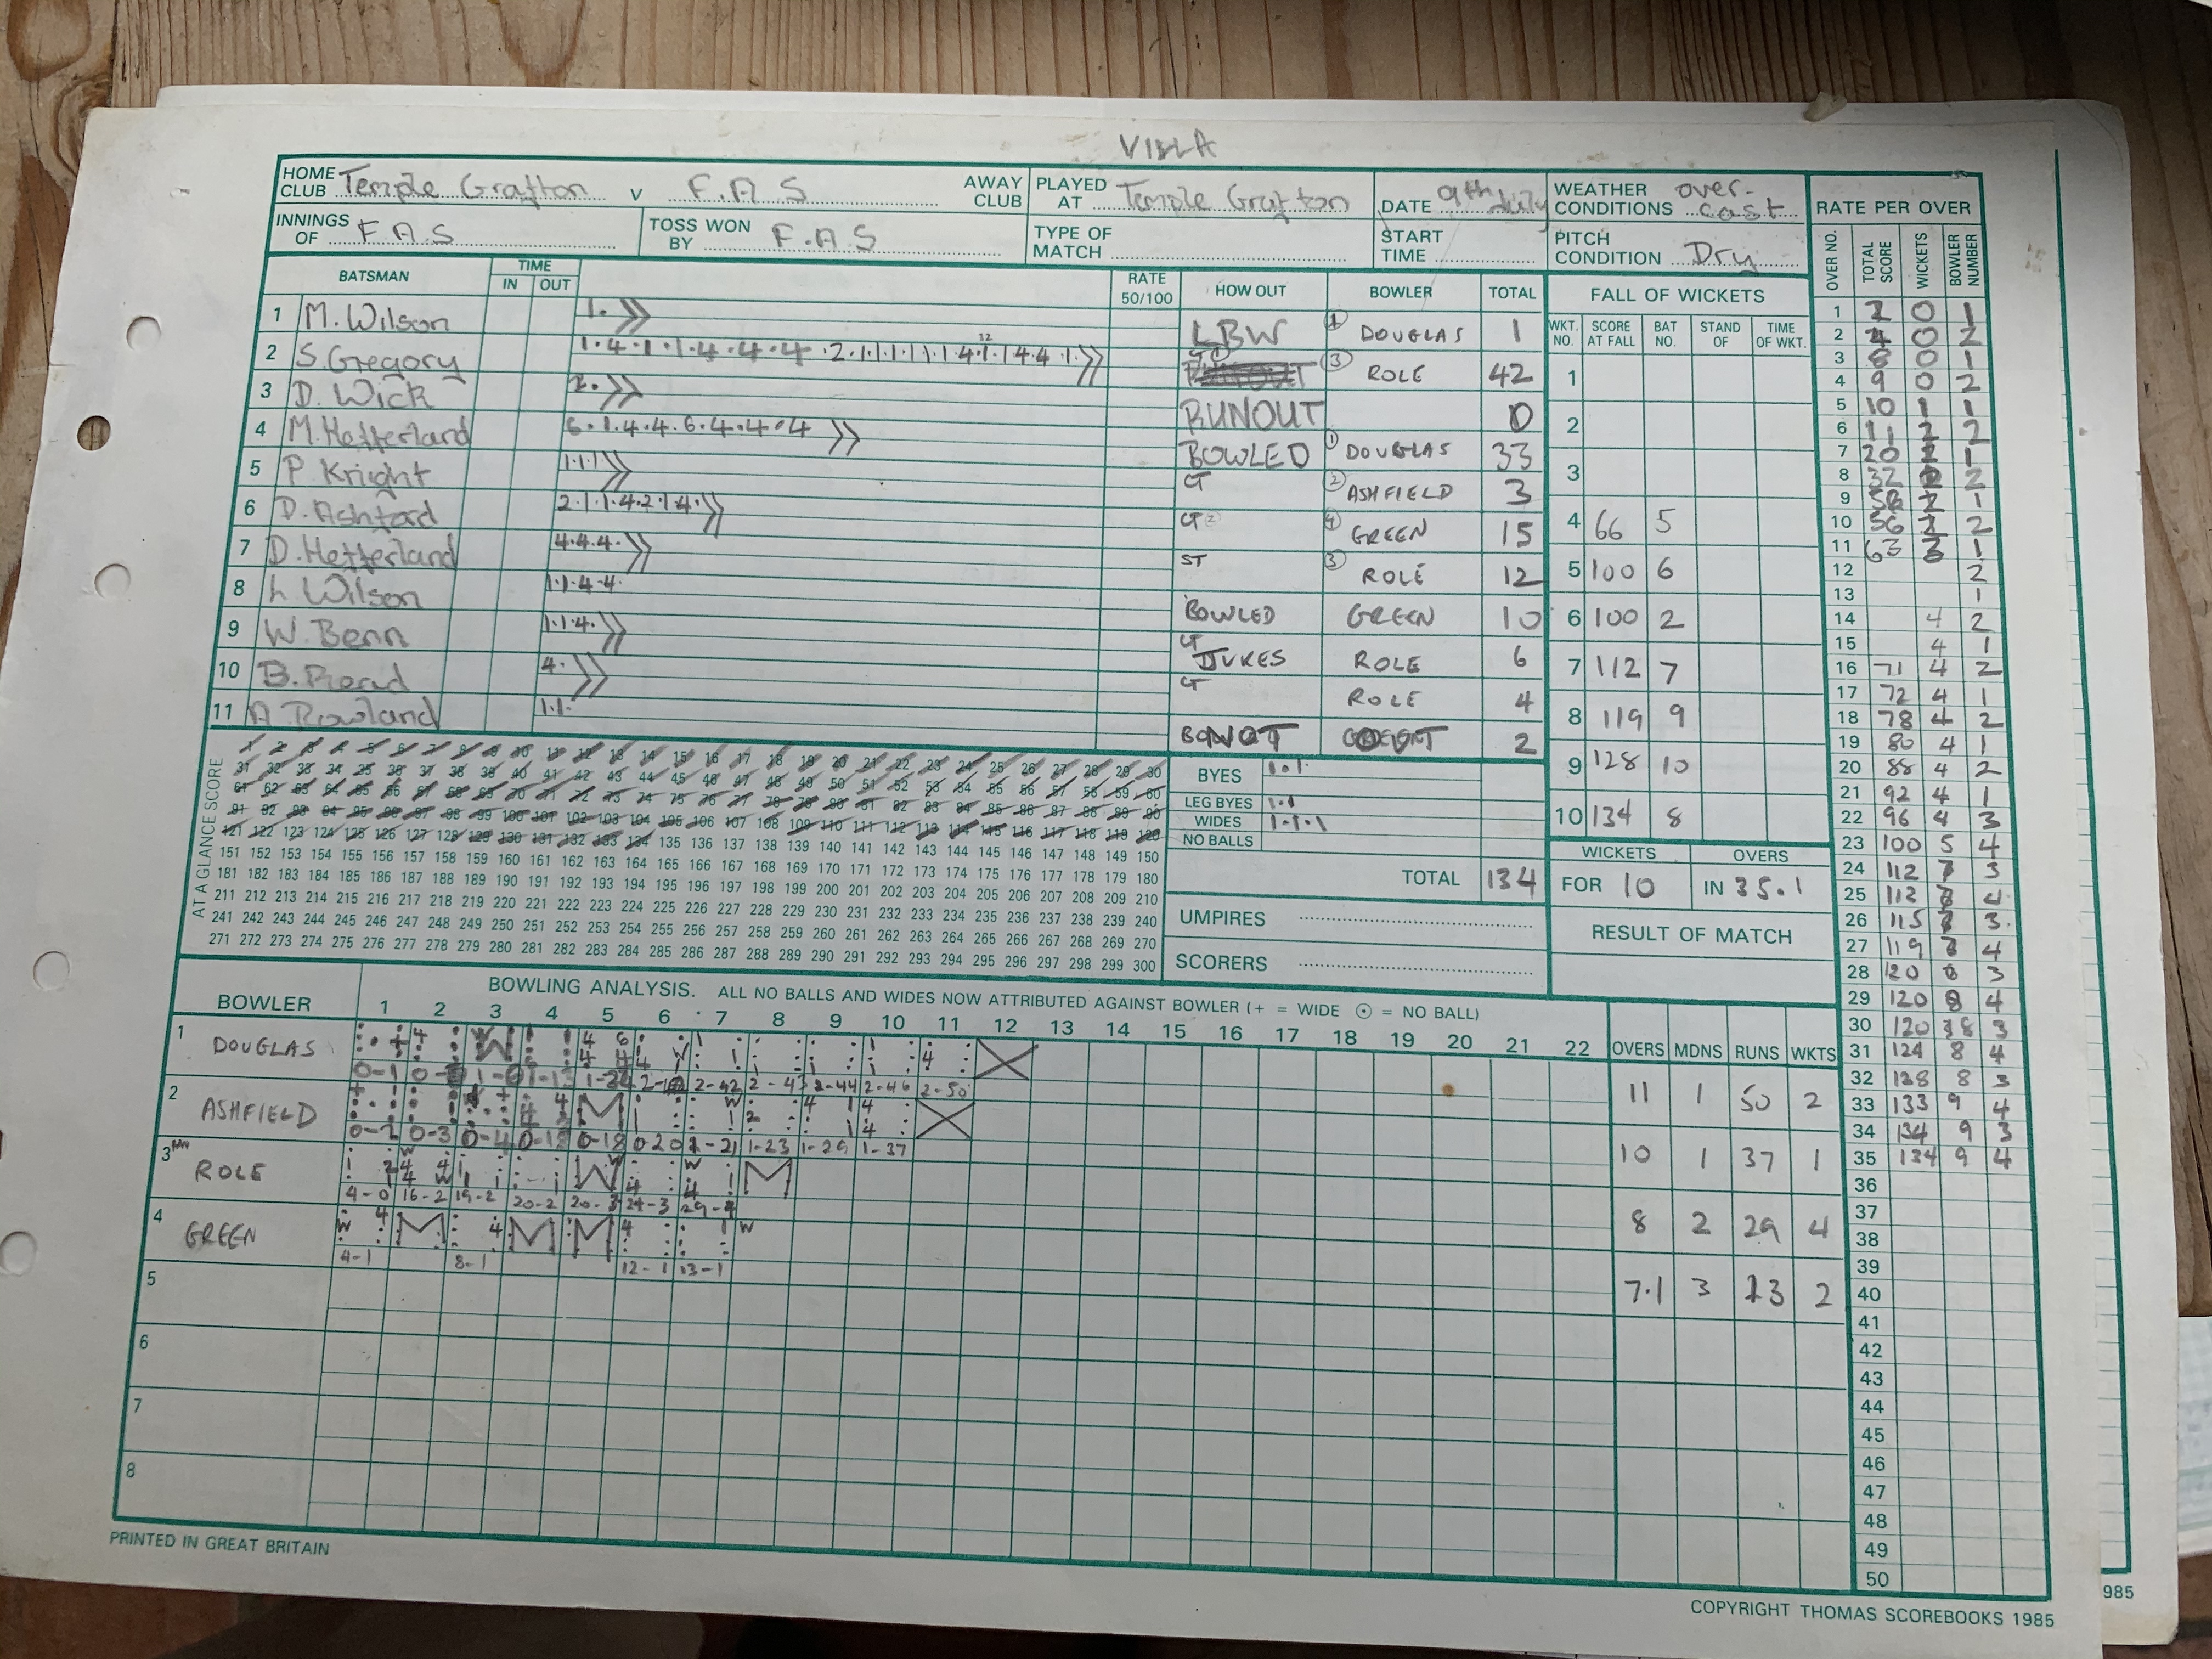 VILLA
HOME CLUB Temple Grafton v F.A.S AWAY CLUB
PLAYED AT Temple Grafton
DATE 9th July
WEATHER CONDITIONS over-cast
INNINGS OF F.A.S
TOSS WON BY F.A.S
TYPE OF MATCH
START TIME
PITCH CONDITION Dry
BATSMAN TIME IN OUT RATE 50/100 HOW OUT BOWLER TOTAL
1 M. Wilson 1. LBW 1 DOUGLAS 1
2 S. Gregory CT 3 ROLE 42
3 D. Wick RUNOUT 0
4 M. Hetherland 6.1.4.4.6.4.4.4 BOWLED 1 DOUGLAS 33
5 P Knight 1.1.1 CT 2 ASHFIELD 3
6 D. Ashford 2.1.1.4.2.1.4. CT 4 GREEN 15
7 D. Hetherland 4.4.4. ST 3 ROLE 12
8 L. Wilson 1.1.4.4. BOWLED GREEN 10
9 W. Benn 1.1.4. CT DUKES ROLE 6
10 B. Read 4. CT ROLE 4
11 A Rowland 1.1. NOT OUT 2
FALL OF WICKETS
WKT. NO. SCORE AT FALL BAT NO. STAND OF TIME OF WKT.
1
2
3
4 66 5
5 100 6
6 100 2
7 112 7
8 119 9
9 128 10
10 134 8
WICKETS OVERS
FOR 10 IN 35.1
RESULT OF MATCH
AT A GLANCE SCORE
1 2 3 4 5 6 7 8 9 10 11 12 13 14 15 16 17 18 19 20 21 22 23 24 25 26 27 28 29 30
31 32 33 34 35 36 37 38 39 40 41 42 43 44 45 46 47 48 49 50 51 52 53 54 55 56 57 58 59 60
61 62 63 64 65 66 67 68 69 70 71 72 73 74 75 76 77 78 79 80 81 82 83 84 85 86 87 88 89 90
91 92 93 94 95 96 97 98 99 100 101 102 103 104 105 106 107 108 109 110 111 112 113 114 115 116 117 118 119 120
121 122 123 124 125 126 127 128 129 130 131 132 133 134 135 136 137 138 139 140 141 142 143 144 145 146 147 148 149 150
151 152 153 154 155 156 157 158 159 160 161 162 163 164 165 166 167 168 169 170 171 172 173 174 175 176 177 178 179 180
181 182 183 184 185 186 187 188 189 190 191 192 193 194 195 196 197 198 199 200 201 202 203 204 205 206 207 208 209 210
211 212 213 214 215 216 217 218 219 220 221 222 223 224 225 226 227 228 229 230 231 232 233 234 235 236 237 238 239 240
241 242 243 244 245 246 247 248 249 250 251 252 253 254 255 256 257 258 259 260 261 262 263 264 265 266 267 268 269 270
271 272 273 274 275 276 277 278 279 280 281 282 283 284 285 286 287 288 289 290 291 292 293 294 295 296 297 298 299 300
BYES 1.1
LEG BYES 1.1
WIDES 1.1.1
NO BALLS
TOTAL 134
UMPIRES
SCORERS
BOWLER BOWLING ANALYSIS. ALL NO BALLS AND WIDES NOW ATTRIBUTED AGAINST BOWLER (+ = WIDE ⊙ = NO BALL)
1 2 3 4 5 6 7 8 9 10 11 12 13 14 15 16 17 18 19 20 21 22 OVERS MDNS RUNS WKTS
1 DOUGLAS 2-42 2-43 2-44 2-46 2-50 11 1 50 2
2 ASHFIELD 0-3 0-4 0-18 0-18 0-20 1-21 1-23 1-29 1-37 10 1 37 1
3 ROLE 4-0 16-2 19-2 20-2 20-3 24-3 29-4 M 8 2 29 4
4 GREEN 4-1 M 8-1 M M 12-1 13-1 W 7.1 3 13 2
5
6
7
8
RATE PER OVER
OVER NO. TOTAL SCORE WICKETS BOWLER NUMBER
1 2 0 1
2 4 0 2
3 8 0 1
4 9 0 2
5 10 1 1
6 11 2 2
7 20 2 1
8 32 2 2
9 56 2 1
10 56 2 2
11 63 3 1
12 2
13 1
14 4 2
15 4 1
16 71 4 2
17 72 4 1
18 78 4 2
19 80 4 1
20 88 4 2
21 92 4 1
22 96 4 3
23 100 5 4
24 112 7 3
25 112 7 4
26 115 7 3
27 119 8 4
28 120 8 3
29 120 8 4
30 120 8 3
31 124 8 4
32 128 8 3
33 133 9 4
34 134 9 3
35 134 9 4
36
37
38
39
40
41
42
43
44
45
46
47
48
49
50
PRINTED IN GREAT BRITAIN
COPYRIGHT THOMAS SCOREBOOKS 1985
985